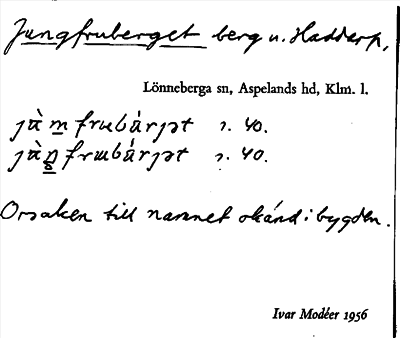 Jungfruberget berg u. Haddarp,
Lönneberga sn, Aspelands hd, Klm. l.
40.
40.
Orsaken till namnet okänd i bygden.
Ivar Modéer 1956